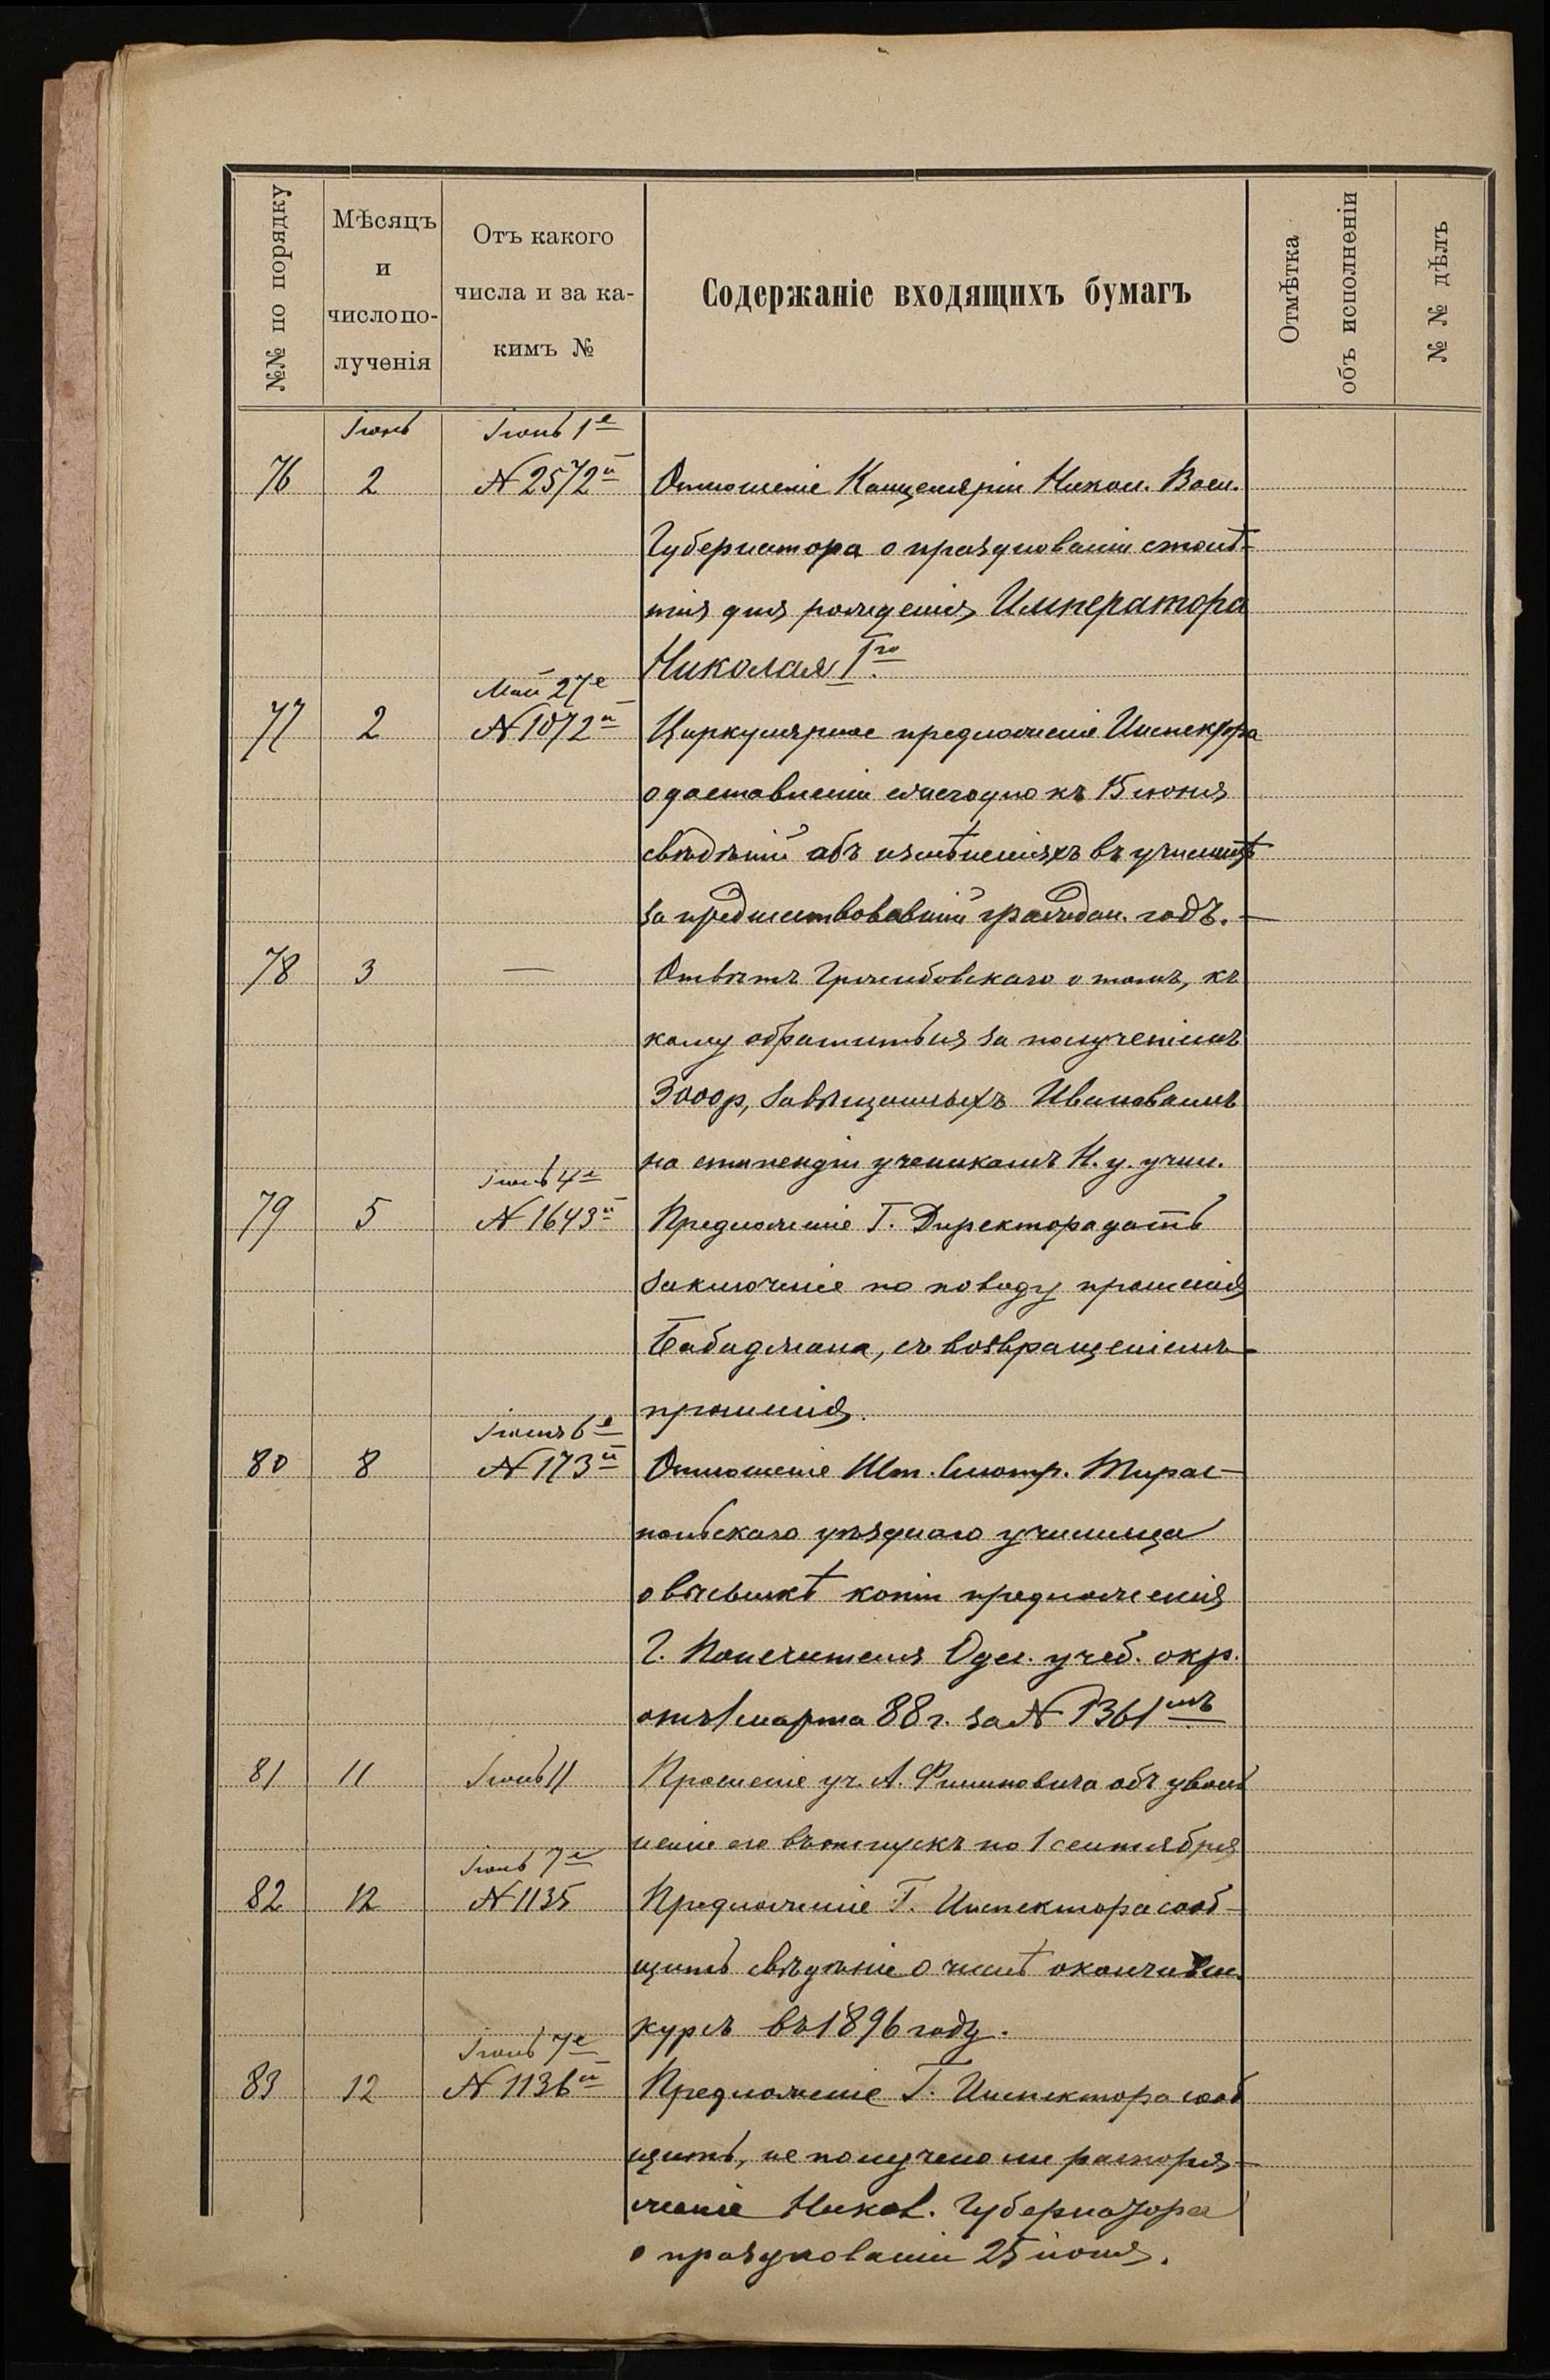 №№ по порядку
Мѣсяцъ
и
число по-
лученія
Отъ какого
числа и за ка-
кимъ №
Содержаніе входящихъ бумагъ
Отмѣтка
объ исполненіи
№ № дѣлъ
Іюнь Іюнь 1е
76 2 № 2572й Отношеніе Канцеляріи Никол. Воен.
Губернатора о празднованіи столѣ-
тія дня рожденія Императора
Николая Iго.
Май 27е
77 2 № 1072й Циркулярное предложеніе Инспектора
о доставленіи ежегодно къ 15 июня
свѣдѣній объ измѣненіяхъ въ училищѣ
за предшествовавшій граждан. годъ.—
78 3 — Отвѣтъ о томъ, къ
кому обратиться за полученіемъ
3000р, завѣщанныхъ Ивановымъ
на стипендіи ученикамъ Н. у. учил.
Іюнь 4е
79 5 № 1643й Предложеніе Г. Директора дать
заключеніе по поводу прошенія
Бабаджана, съ возвращеніемъ
прошенія.
Іюнь 6е
80 8 № 173й Отношеніе Шт. Смотр. Тирас-
польскаго уѣзднаго училища
о высылкѣ копіи предложенія
Г. Попечителя Одес. учеб. окр.
отъ 1 марта 88 г. за № 1361мъ
81 11 Іюнь 11 Прошеніе уч. А. Филиповича объ уволь
неніи его въ отпускъ по 1 сентября
Іюнь 7е
82 12 № 1135 Предложеніе Г. Инспектора сооб-
щить свѣдѣніе о числѣ окончивш.
курсъ въ 1896 году.
Іюнь 7е
83 12 № 1136й Предложеніе Г. Инспектора сооб
щить, не получено ли распоря-
женіе Никол. Губернатора
о празднованіи 25 іюня.